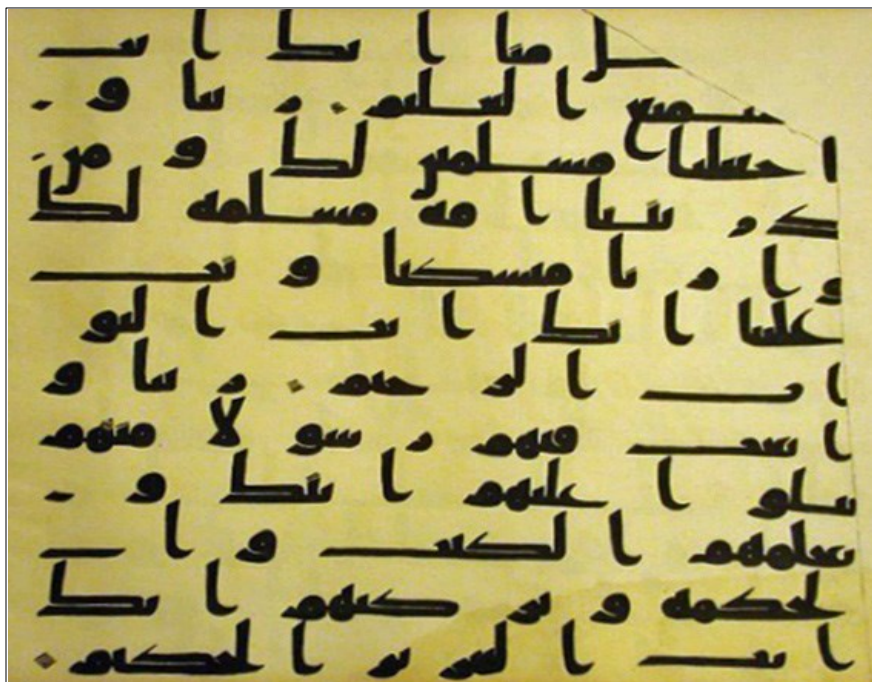 ل منا انك انت
سميع العليم ربنا و
اجعلنا مسلمين لك و من
ذريتنا امة مسلمة لك
و ارنا منسكنا و تب
علينا انك انت التو
اب الرحيم ربنا و
ابعث فيهم رسولا منهم
يتلوا عليهم ايتك و
يعلمهم الكتب و ا
لحكمة و يزكيهم انك
انت العزيز الحكيم